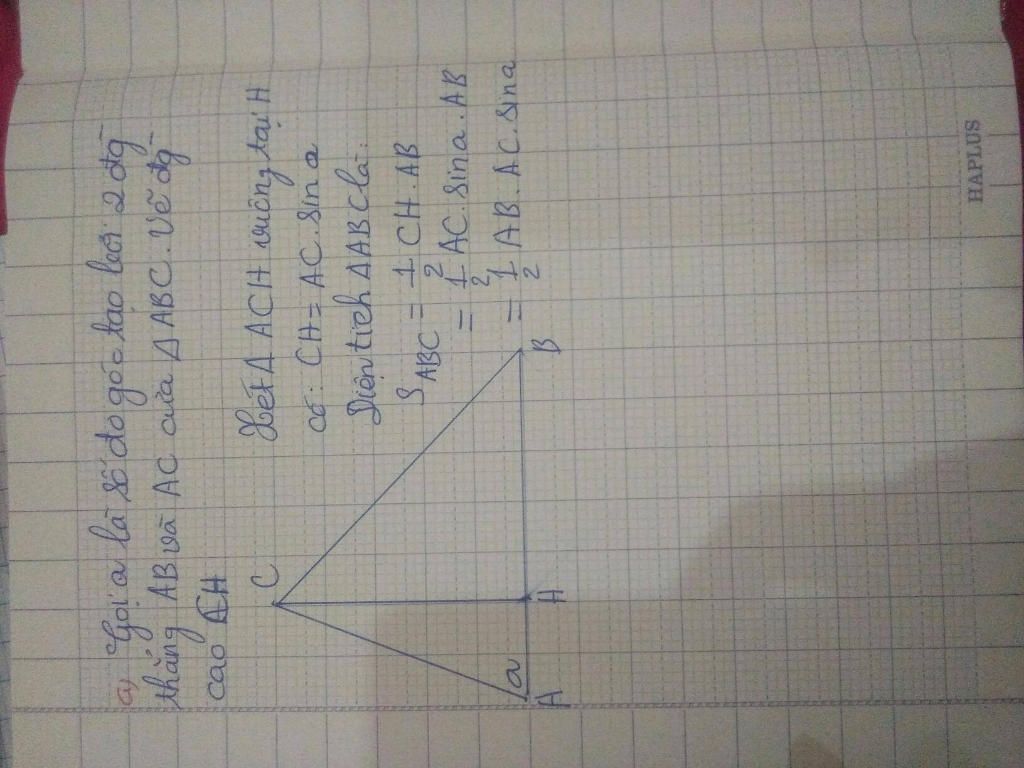 a) Gọi a là số đo góc tạo bởi 2 đg
thẳng AB và AC của Δ ABC. Vẽ đg
cao CH
Xét Δ ACH vuông tại H
có: CH = AC. sin a
Diện tích ΔABC là:
S_ABC = 1/2 CH. AB
= 1/2 AC. sina. AB
= 1/2 AB. AC. sina
C
a
A
H
B
HAPLUS